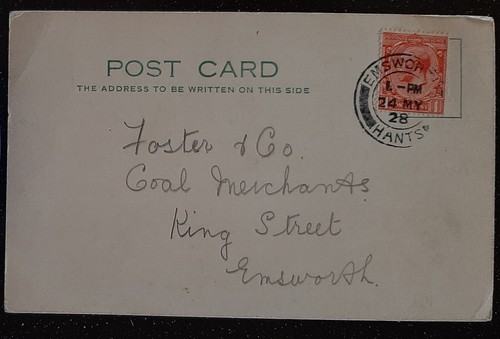 POST CARD
THE ADDRESS TO BE WRITTEN ON THIS SIDE
EMSWORTH
1. -PM
24 MY
28
HANTS
Foster & Co.
Coal Merchants
King Street
Emsworth.